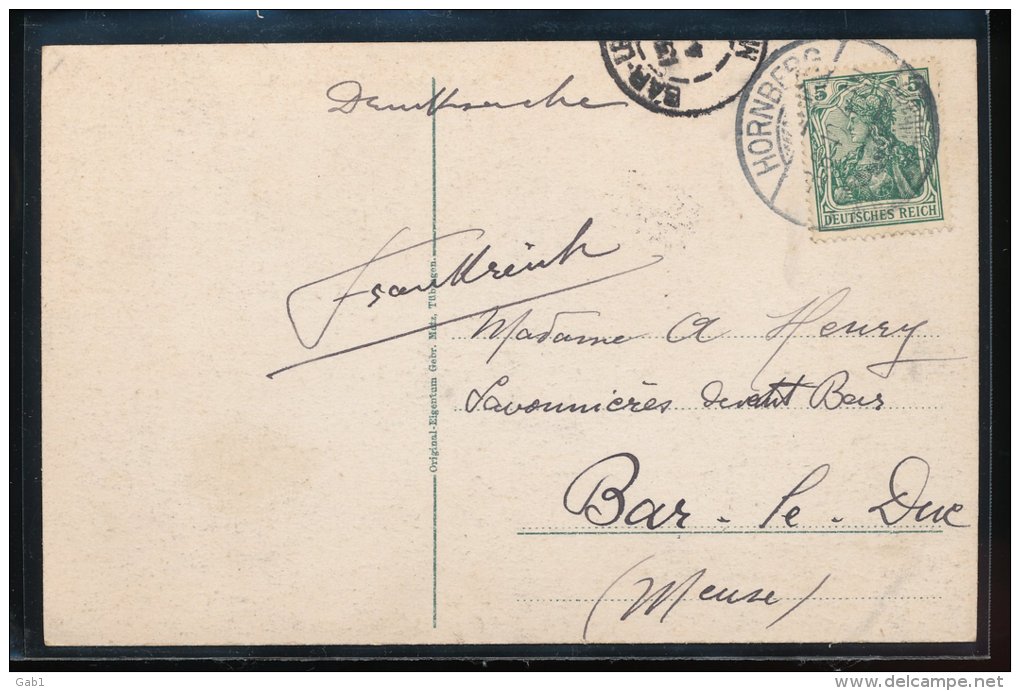 Drucksache
BAR-LE
HORNBERG
5 5
DEUTSCHES REICH
Frankreich
Madame A Henry
Savonnières devant Bar
Bar-le-Duc
(Meuse)
Original-Eigentum Gebr. Metz, Tübingen.
Gab1
www.delcampe.net